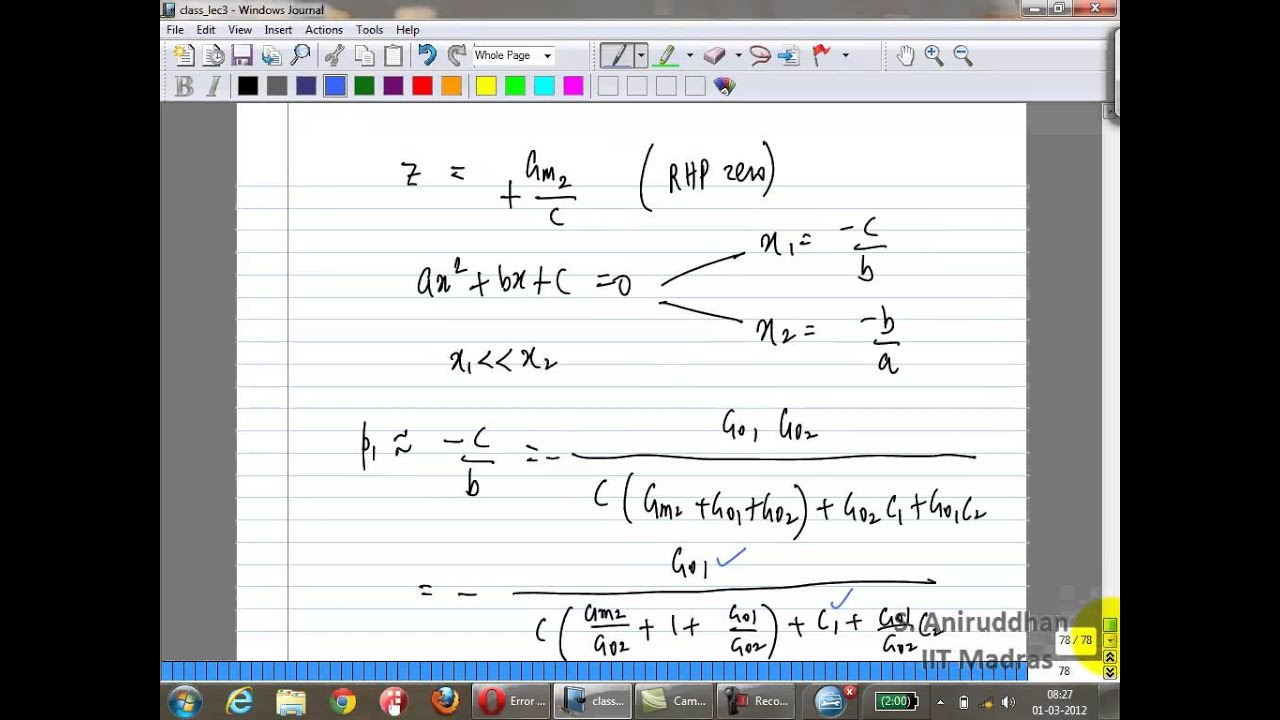 class_lec3 - Windows Journal
File Edit View Insert Actions Tools Help
Whole Page
B I
z = + Gm2/C (RHP zero)
ax² + bx + c = 0
x1 = -c/b
x2 = -b/a
x1 << x2
p1 ≈ -c/b = - G01 G02 / C(Gm2 + G01 + G02) + G02 C1 + G01 C2
= - G01 ✓ / C(Gm2/G02 + 1 + G01/G02) + C1 ✓ + G01/G02 C2
S. Aniruddhan
78 / 78
IIT Madras
78
Error ...
class...
Cam...
Reco...
(2:00)
08:27
01-03-2012